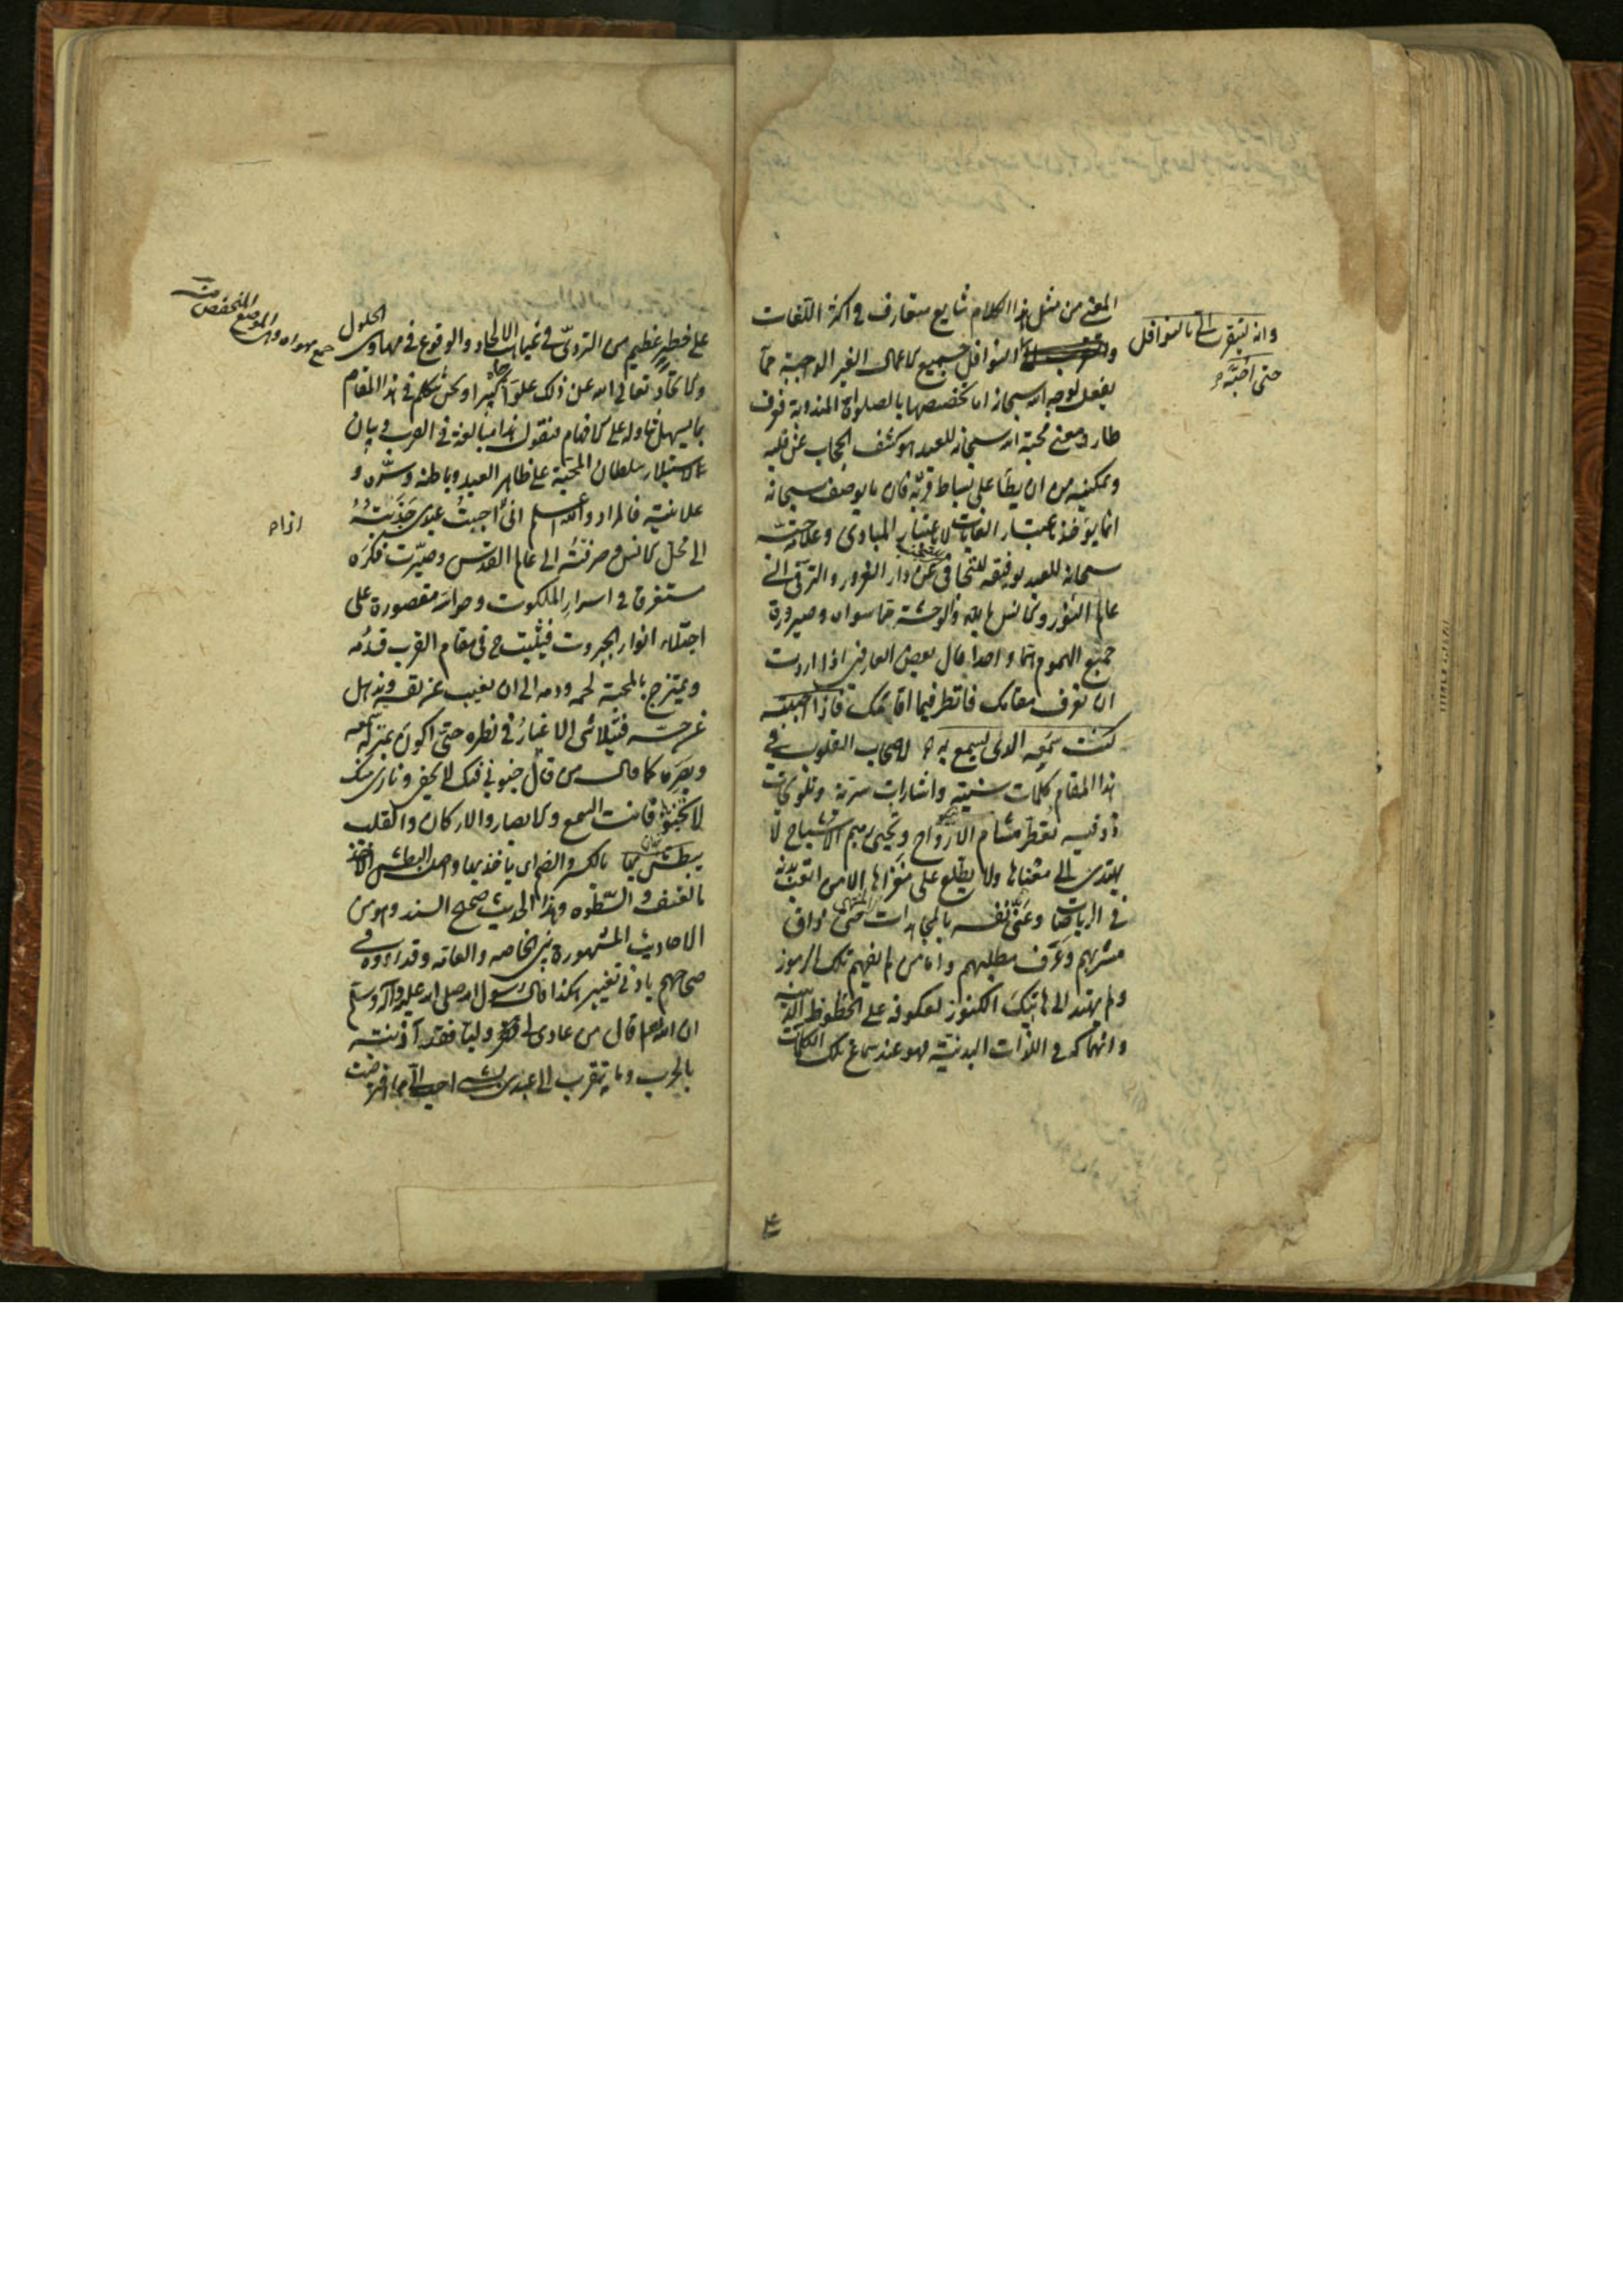 المعنى من مثل هذا الكلام شايع متعارف في اكثر اللغات
وانه ليتقرب الي بالنوافل
حتى احبه
النوافل جميع الاعمال الغير الواجبة مما
يفعل لوجه الله سبحانه اما تخصيصها بالصلوات المندوبة فعرف
طار ومعنى محبة الله سبحانه للعبد هو كشف الحجاب عن قلبه
وتمكينه من ان يطأ على بساط قربه فان ما يوصف به سبحانه
انما يؤخذ باعتبار الغايات لا باعتبار المبادي وعلامة حبه
سبحانه للعبد توفيقه للتجافي عن دار الغرور والترقي الى
عالم النور والانس بالله والوحشة مما سواه وصيرورة
جميع الهموم هما واحدا قال بعض العارفين اذا اردت
ان تعرف مقامك فانظر فيما اقامك فاذا احببته
كنت سمعه الذي يسمع به لاصحاب القلوب في
هذا المقام كلمات سنية واشارات سرية وتلويحات
ذوقية تعطر مشام الارواح وتحيي رميم الاشباح لا
يهتدي الى معناها ولا يطلع على مغزاها الا من اتعب بدنه
في الرياضات وعنى نفسه بالمجاهدات حتى ذاق
مشربهم وعرف مطلبهم واما من لم يفهم تلك الرموز
ولم يهتد الى هاتيك الكنوز لعكوفه على الحظوظ الدنية
وانهماكه في اللذات البدنية فهو عند سماع تلك الكلمات
على خطر عظيم من التردي في غياهب الالحاد والوقوع في مهاوي الحلول
جمع مهواه وهي الموضع المنخفض
والاتحاد تعالى الله عن ذلك علوا كبيرا ونحن نتكلم في هذا المقام
بما يسهل تناوله على الافهام فنقول هذا مبالغة في القرب وبيان
لاستيلاء سلطان المحبة على ظاهر العبد وباطنه وسره و
علانيته فالمراد والله اعلم اني اذا احببت عبدي جذبته
الى محل الانس وصرفته الى عالم القدس وصيرت فكره
مستغرقا في اسرار الملكوت وحواسه مقصورة على
اجتلاء انوار الجبروت فيثبت ح في مقام القرب قدمه
ويمتزج بالمحبة لحمه ودمه الى ان يغيب عن نفسه ويذهل
عن حسه فيتلاشى الاغيار في نظره حتى اكون بمنزلة سمعه
وبصره كما قال من قال جنوني فيك لا يخفى وناري منك
لا تخبو فانت السمع والابصار والاركان والقلب
يبطش بها بالكسر والضم اي ياخذ بها واصل البطش الاخذ
بالعنف والسطوه وهذا الحديث صحيح السند وهو من
الاحاديث المشهورة بين الخاصه والعامه وقد رووه في
صحاحهم بادنى تغيير هكذا قال رسول الله صلى الله عليه وآله وسلم
ان الله تعالى قال من عادى لي وليا فقد آذنته
بالحرب وما يتقرب الي عبدي بشيء احب الي مما افترضت